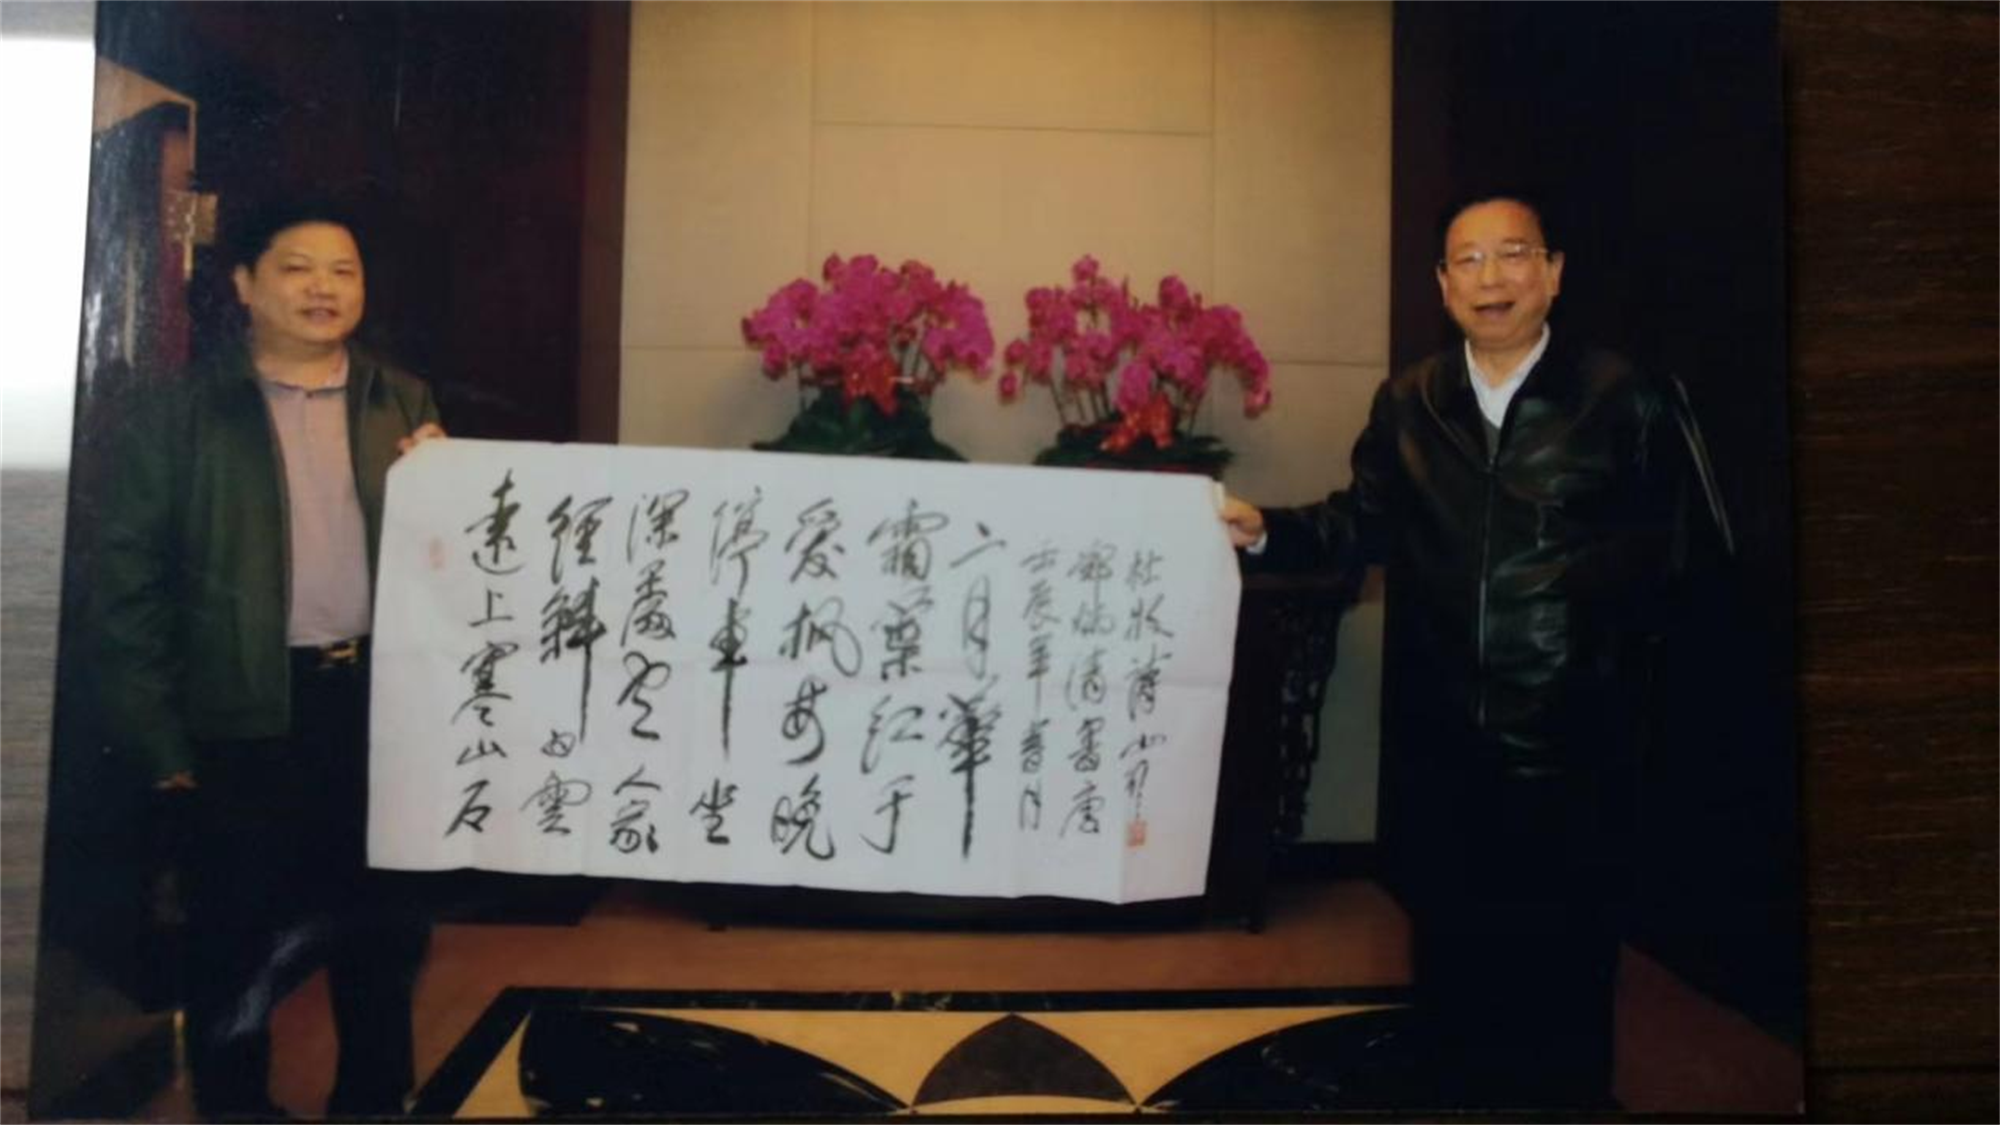 遠上寒山石
徑斜白雲
深處有人家
停車坐
愛楓林晚
霜葉紅于
二月華
壬辰年春月
清書唐
杜牧詩山行